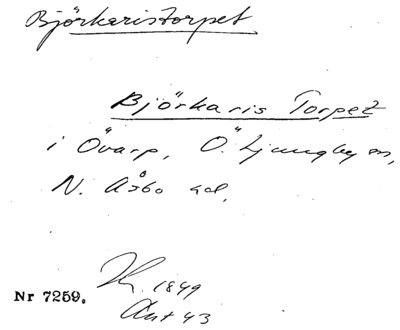 Björkaristorpet
Björkaris Torpet
i Övarp, Ö. Ljungby sn,
N. Åsbo hd,
1849
Nr 7259.
Ant 43